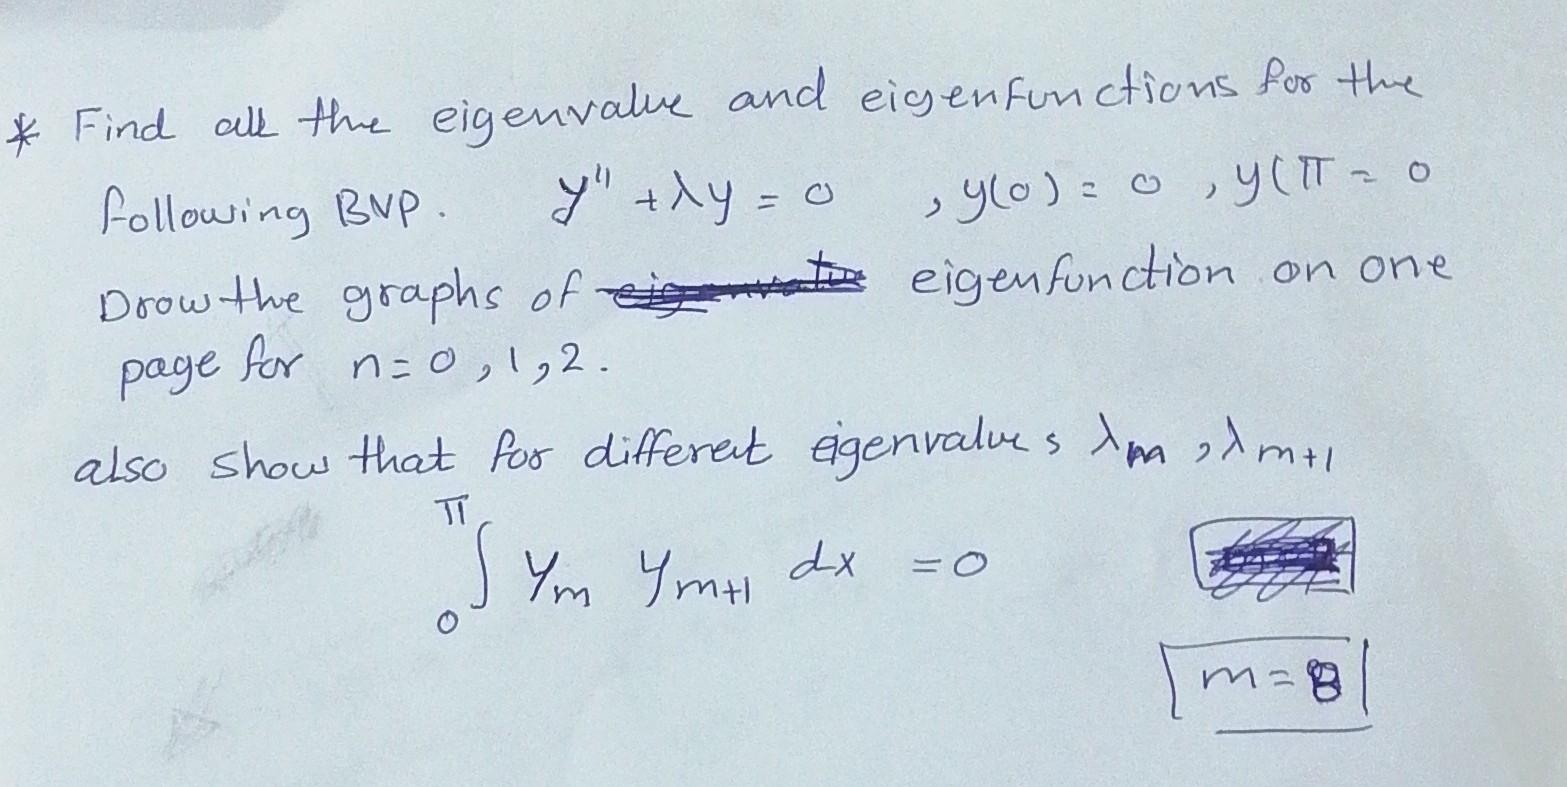 * Find all the eigenvalue and eigenfunctions for the
following BVP. y'' + λy = 0 , y(0) = 0 , y(π = 0
Drow the graphs of eigenfunction on one
page for n=0,1,2.
also show that for differet eigenvalues λm , λm+1
π
∫ Ym Ym+1 dx = 0
0
m=8